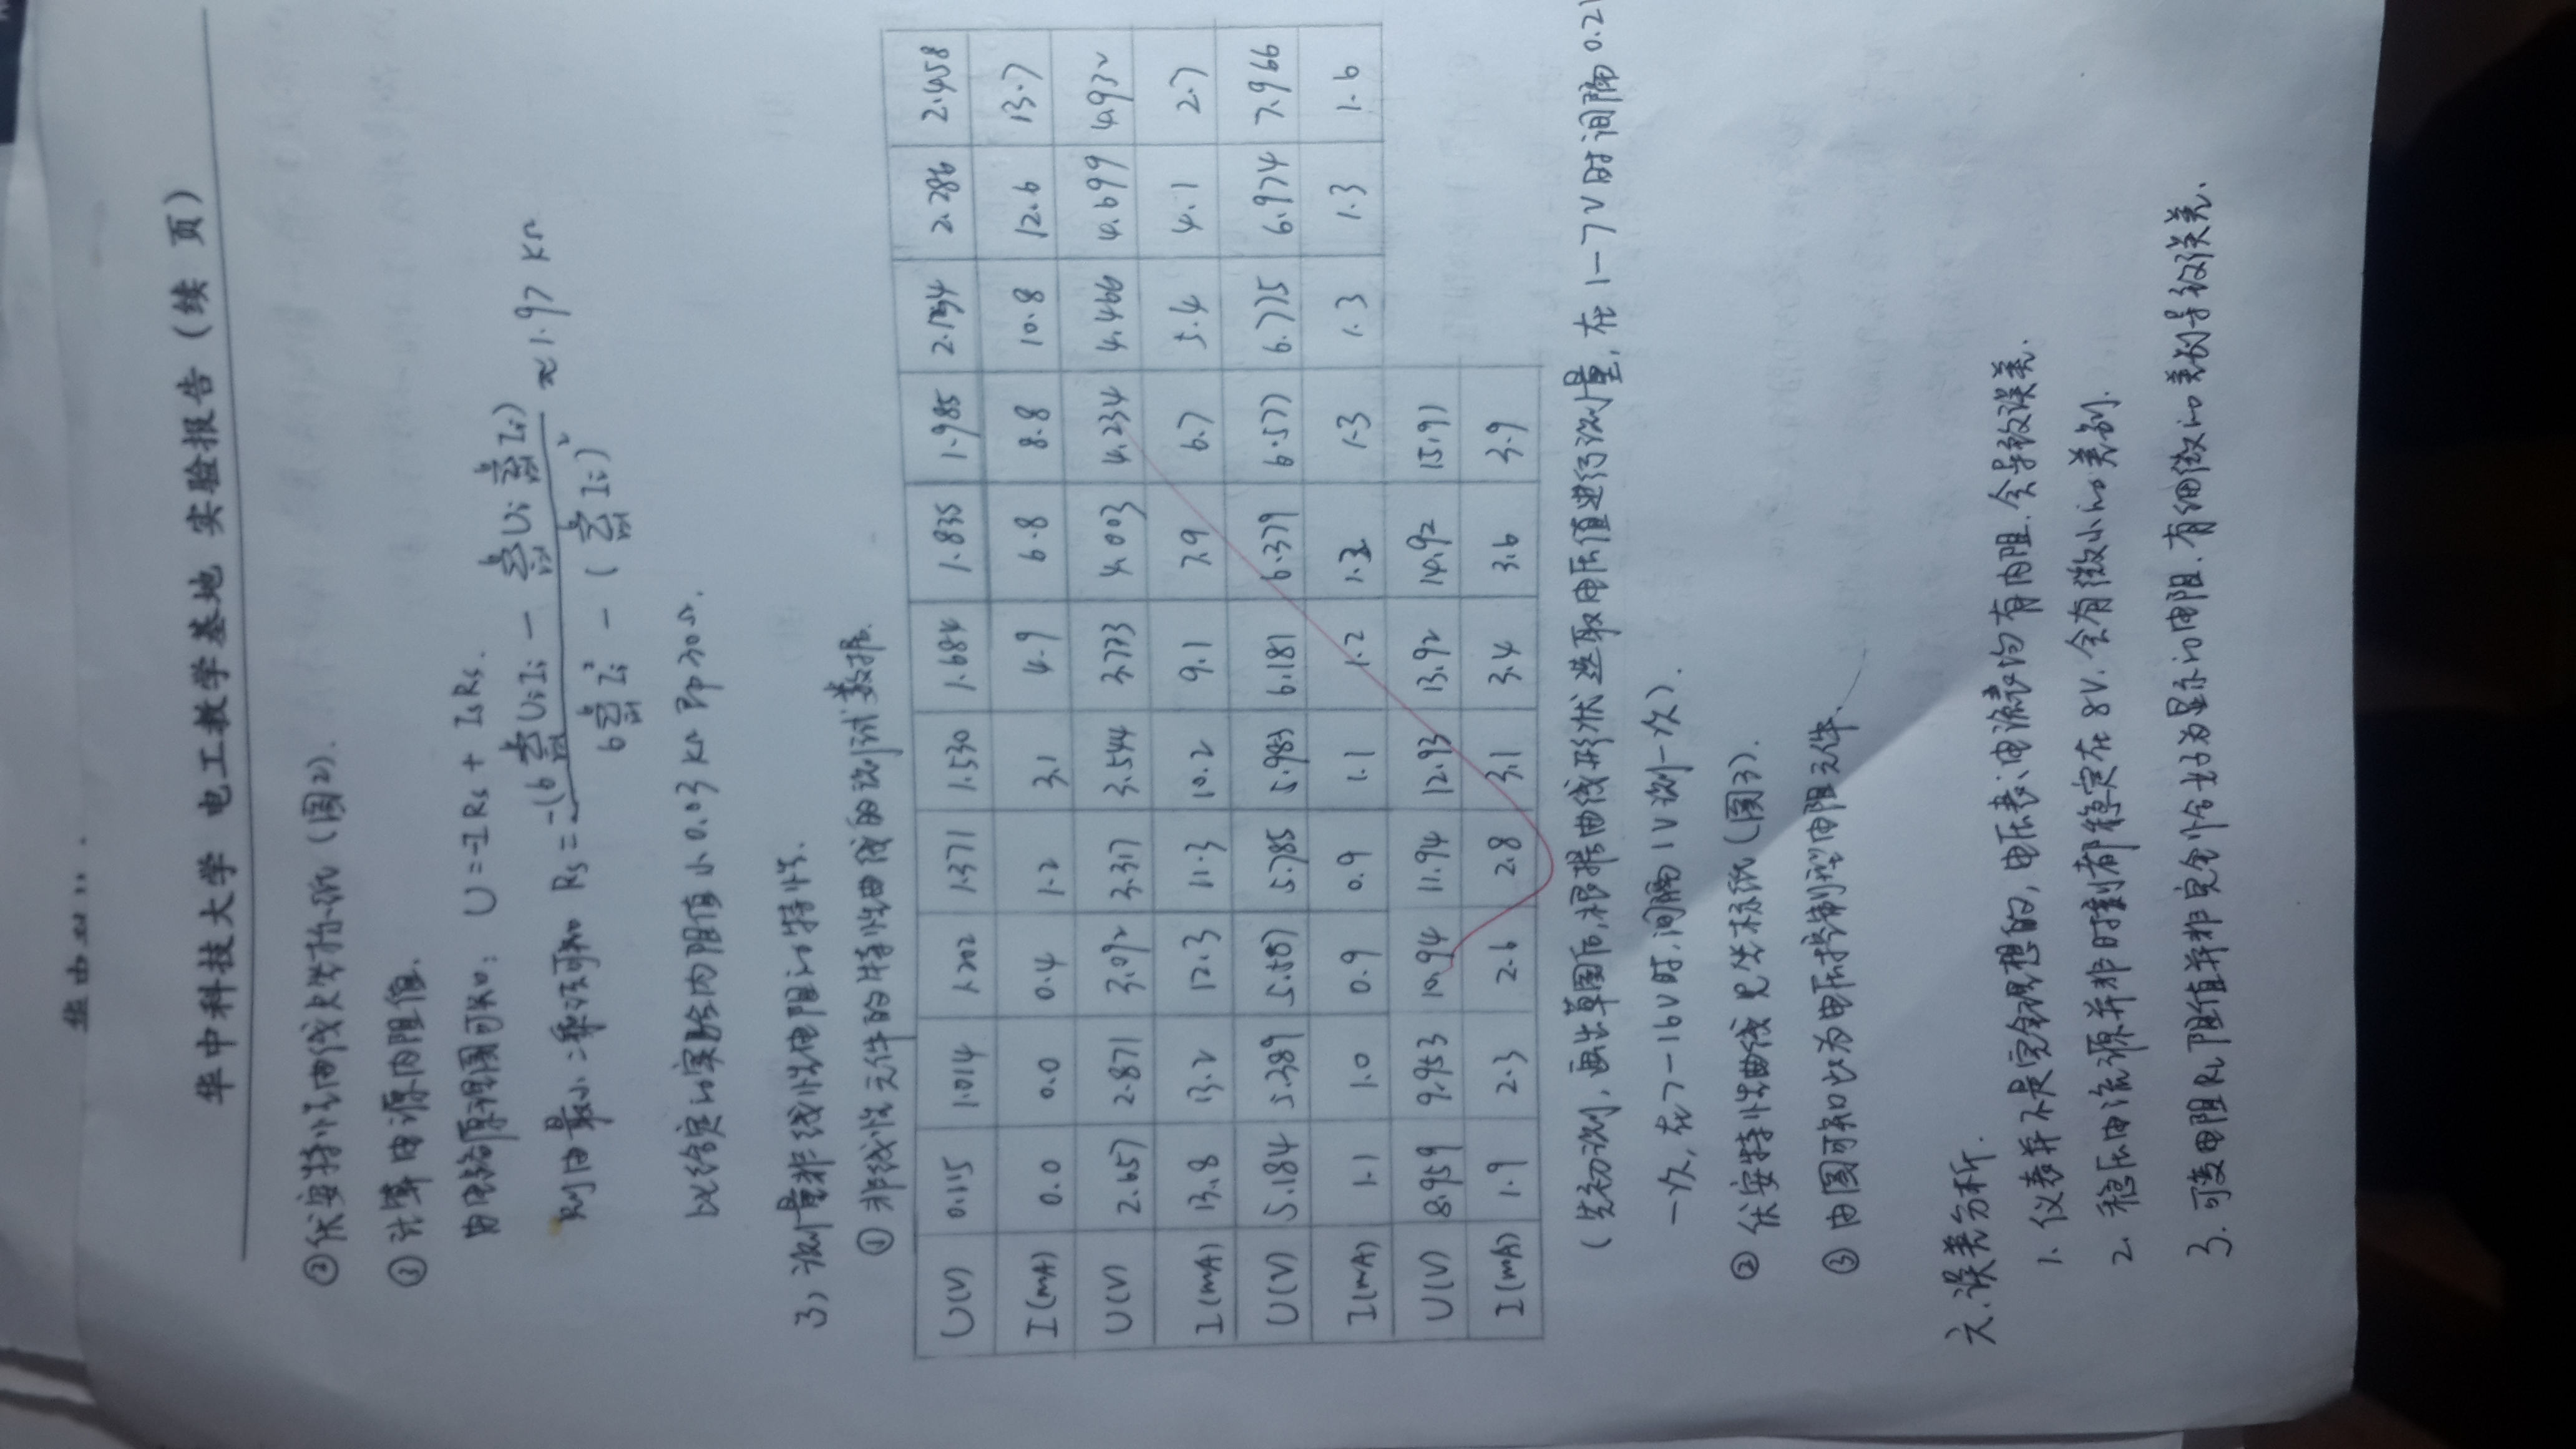 华中科技大学 电工教学基地 实验报告（续 页）
②伏安特性曲线见坐标纸（图2）.
③计算电源内阻值.
由电路原理图可知: U=-IRs + IsRs.
则由最小二乘法可知 Rs = -(6∑UiIi - ∑Ui∑Ii) / (6∑Ii² - (∑Ii)²) ≈ 1.97 KΩ
比给定的实验内阻值小0.03 KΩ 即30Ω.
3、测量非线性电阻的特性.
① 非线性元件的特性曲线的测试数据.
U(V) 0.115 1.014 1.202 1.371 1.530 1.684 1.835 1.985 2.286 2.458
I(mA) 0.0 0.0 0.4 1.2 3.1 4.9 6.8 8.8 10.8 12.6 13.7
U(V) 2.657 2.871 3.092 3.317 3.544 3.773 4.003 4.234 4.466 4.699 4.932
I(mA) 13.8 13.2 12.3 11.3 10.2 9.1 7.9 6.7 5.4 4.1 2.7
U(V) 5.184 5.389 5.587 5.785 5.983 6.181 6.379 6.577 6.775 6.974 7.966
I(mA) 1.1 1.0 0.9 0.9 1.1 1.2 1.3 1.3 1.3 1.6
U(V) 8.959 9.953 10.94 11.94 12.93 13.92 14.92 15.91
I(mA) 1.9 2.3 2.6 2.8 3.1 3.4 3.6 3.9
（先初测, 画出草图后, 根据曲线形状选取电压值进行测量, 在1-7V时间隔0.2
一次, 在7-16V时, 间隔1V测一次）.
② 伏安特性曲线见坐标纸（图3）.
③ 由图可知此为电压控制型电阻元件.
六、误差分析.
1. 仪表并不是完全理想的, 电压表、电流表均有内阻. 会导致误差.
2. 稳压电流源并非时刻都稳定在8V. 会有微小的差别.
3. 可变电阻RL阻值并非完全恰好为显示的电阻. 有细微的差别导致误差.